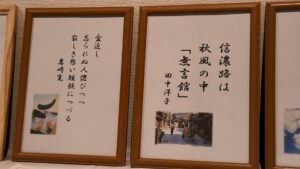 信濃路は
秋風の中
「無言館」
田中洋子
盆近し
忘られぬ人偲びつつ
寂しき想い短歌につづる
岩崎寛